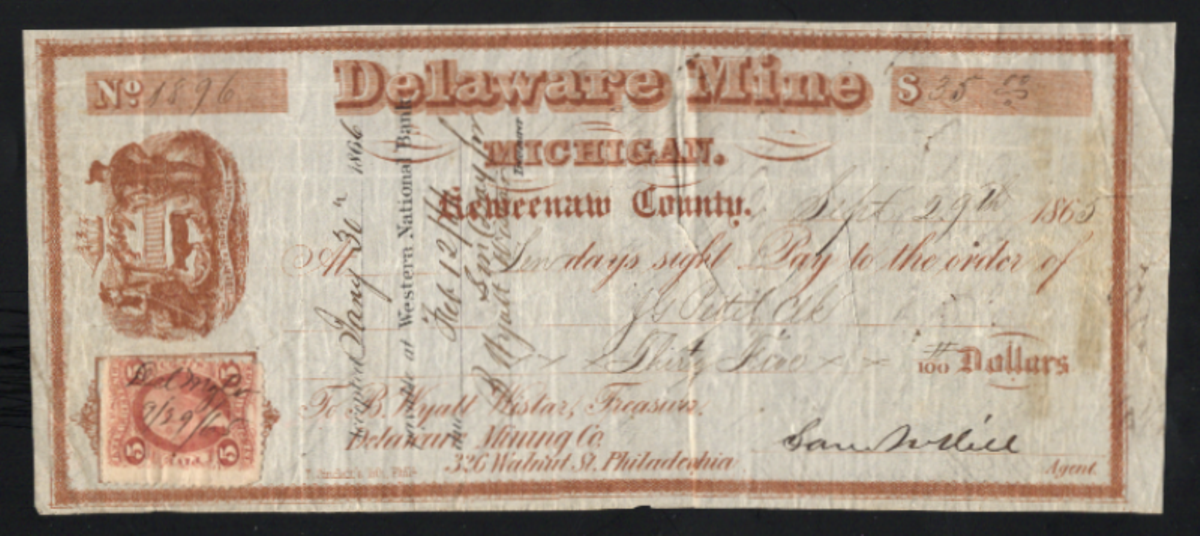 No 1896 Delaware Mine $ 35 00
MICHIGAN.
Keweenaw County. Sept 29th 1865
At Ten days sight Pay to the order of
Thirty Five × × 100 Dollars
To B. Wyatt Wistar, Treasurer,
Delaware Mining Co.
326 Walnut St. Philadephia
Agent.
Accepted Jany 30th 1866
Payable at Western National Bank
Feb 12/66
B Wyatt Wistar
Treasurer
5 5
Del Mg Co
9/29/65